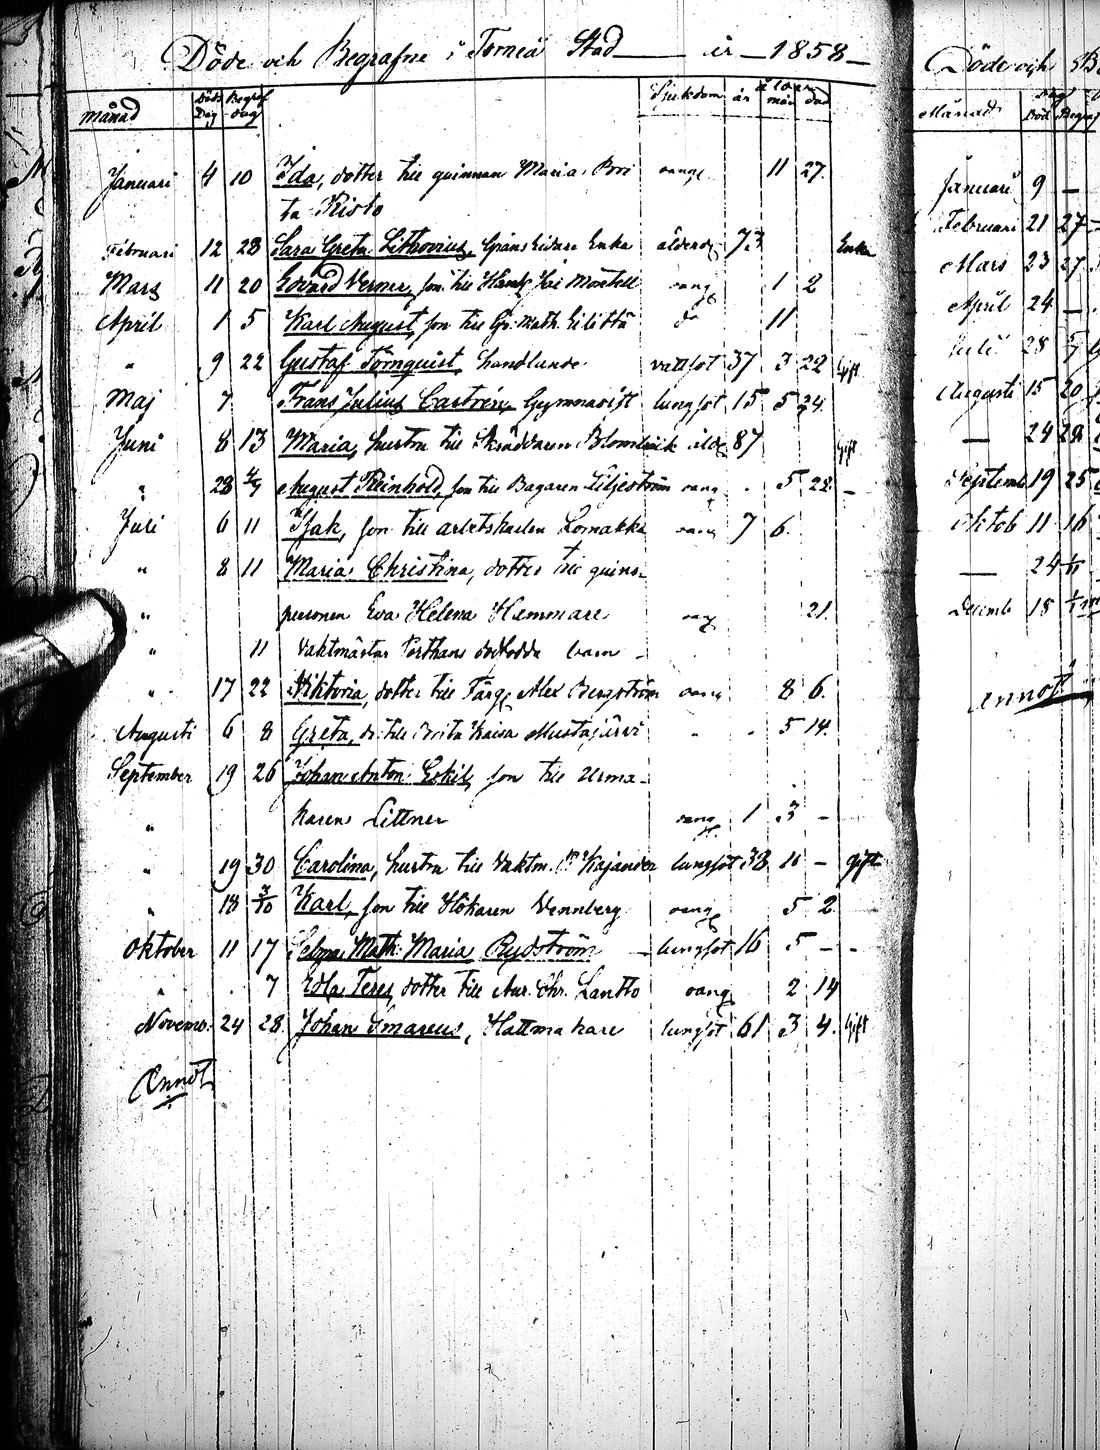 Döde och Begrafne i Torneå Stad år 1858
Månad Döds Dag Begraf dag Sjukdom ålder år mån dag
Januari 4 10 Ida, dotter till quinnan Maria Bri 11 27
ta Risto
Februari 12 28 Sara Greta Lithovius, Enka ålderd 73 Enka
Mars 11 20 Edvard Verner, son till 1 2
April 1 5 Karl August, son till do 11
" 9 22 Gustaf Törnquist, handlande vattsot 37 3 22 Gift
Maj 7 Frans Julius Castrén, Gymnasist lungsot 15 5 24
Juni 8 13 Maria, hustru till Skräddaren åld 87 Gift
" 28 4/7 August Reinhold, son till Bagaren Liljeström 5 22 -
Juli 6 11 Isak, son till arbetskarlen Lomakka 7 6
" 8 11 Maria Christina, dotter till quins-
" personen Eva Helena Hammare 21
" 11 Vaktmästar Porthans dödfödda barn -
" 17 22 Viktoria, dotter till Färg Alex Bergström 8 6
Augusti 6 8 Greta, do till Brita Kaisa Mustajärvi 5 14
September 19 26 Johan Anton Eskil, son till Urma-
" karen Littner 1 3 -
" 19 30 Carolina, hustru till Vaktm. Kajander lungsot 38 10 - Gift
" 18 3/10 Karl, son till Hökaren Vennberg 5 2
Oktober 11 17 Selma Math. Maria Rydström lungsot 16 5 - -
" 7 Edla Teres, dotter till Chr. Lantto 2 14
Novemb. 24 28 Johan Smareus, Hattmakare lungsot 61 3 4 Gift
Annot
Döde och
Månad Död Begraf
Januari 9 -
Februari 21 27
Mars 23 27
April 24 -
Juli 28
Augusti 15 20
- 24 29
Septemb 19 25
Oktob 11 16
- 24
Decemb 18
Annot